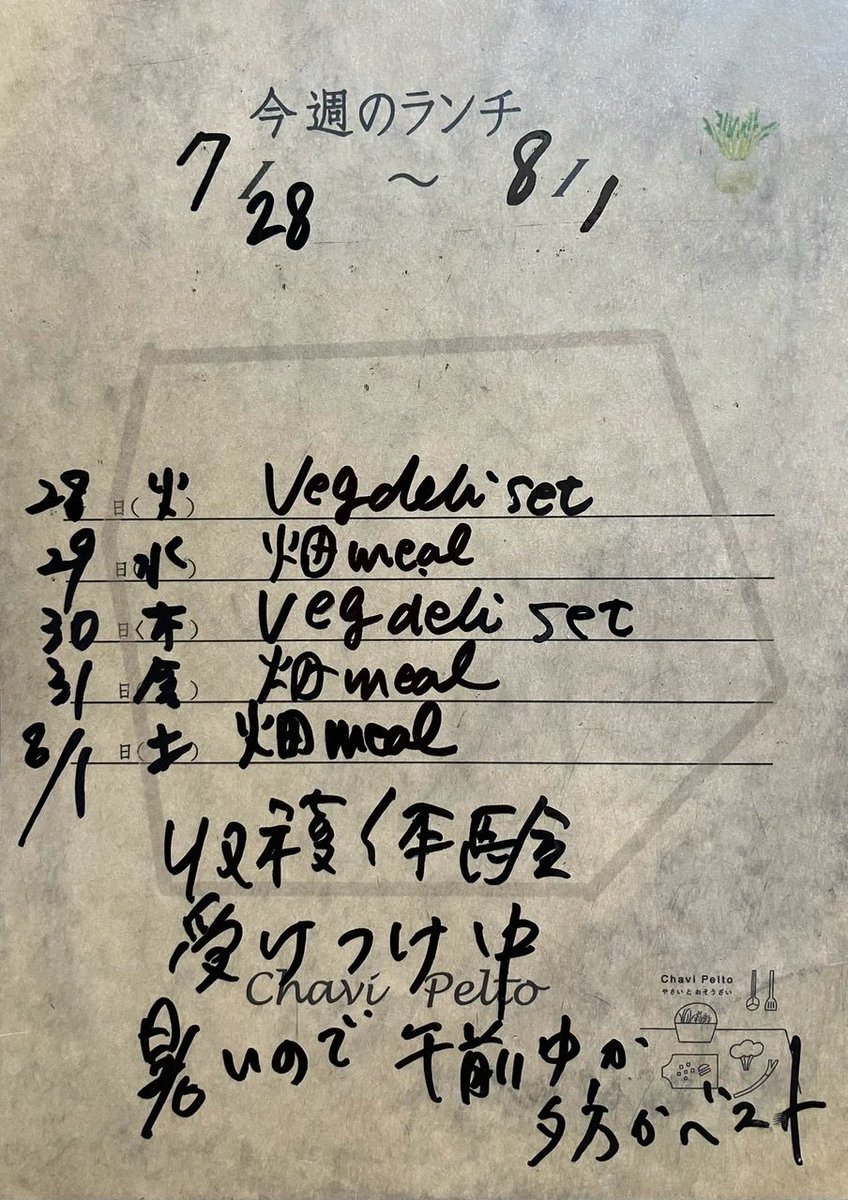 今週のランチ
7/28 〜 8/1
28日(火) Vegdeli set
29日(水) 畑meal
30日(木) Vegdeli set
31日(金) 畑meal
8/1日(土) 畑meal
収穫体験
受けつけ中
Chavi Pelto
暑いので 午前中か
夕方がベスト
Chavi Pelto
やさいとおそうざい